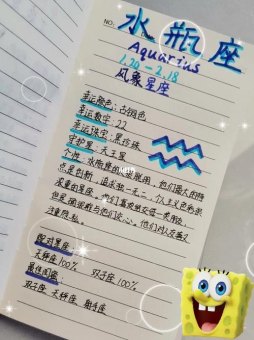 NO.
水瓶座
Aquarius
1.20-2.18
风象星座
幸运颜色:古铜色
幸运数字:22
幸运珠宝:黑珍珠
守护星:天王星
个性:水瓶座的很聪明,他们最大的特
点是创新,追求独一无二,个人主义色彩很
浓重的星座。他们喜欢
但是
注意隐私。
配对星座:
天秤座100% 双子座100%
最佳朋友:
双子座 天秤座 射手座